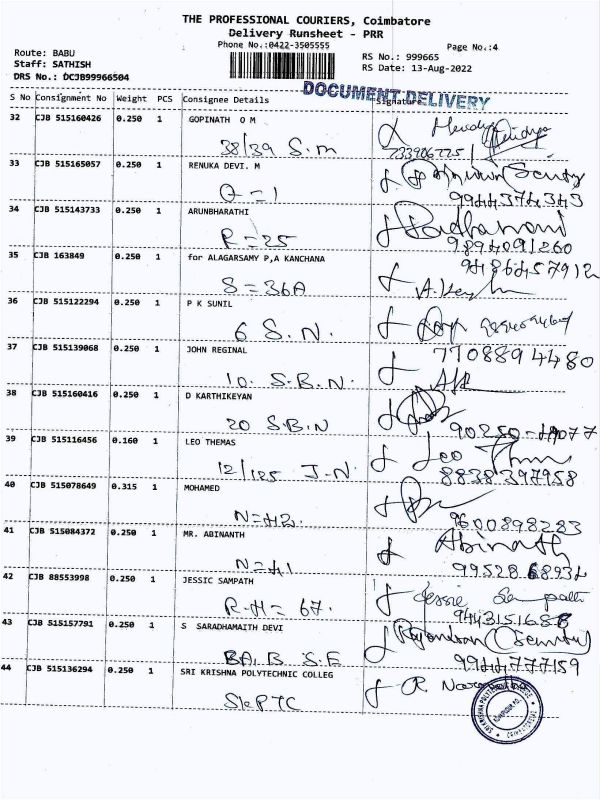 THE PROFESSIONAL COURIERS, Coimbatore
Delivery Runsheet - PRR
Phone No.:0422-3505555
Page No.:4
Route: BABU
Staff: SATHISH
DRS No.: DCJB99966504
RS No.: 999665
RS Date: 13-Aug-2022
DOCUMENT DELIVERY
S No Consignment No Weight PCS Consignee Details Signature
32 CJB 515160426 0.250 1 GOPINATH O M
38/39 S.m
33 CJB 515165057 0.250 1 RENUKA DEVI. M
Q=1
9944374343
34 CJB 515143733 0.250 1 ARUNBHARATHI
R=25
9894091260
35 CJB 163849 0.250 1 for ALAGARSAMY P,A KANCHANA
9486457912
S=36A
36 CJB 515122294 0.250 1 P K SUNIL
6 S.N.
37 CJB 515139068 0.250 1 JOHN REGINAL
7708894480
10. S.B.N.
38 CJB 515160416 0.250 1 D KARTHIKEYAN
20 S.B.N
39 CJB 515116456 0.160 1 LEO THEMAS
Leo
12/125 J-N.
8838397958
40 CJB 515078649 0.315 1 MOHAMED
N=42.
9600898283
41 CJB 515084372 0.250 1 MR. ABINANTH
Abinath
N=41
99528 68934
42 CJB 88553998 0.250 1 JESSIC SAMPATH
Jessie Sampath
R-H= 67.
43 CJB 515157791 0.250 1 S SARADHAMAITH DEVI
BA1.B S.E
9944777159
44 CJB 515136294 0.250 1 SRI KRISHNA POLYTECHNIC COLLEG
SKPTC